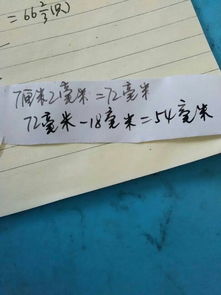 =66⅔(只)
7厘米2毫米=72毫米
72毫米-18毫米=54毫米